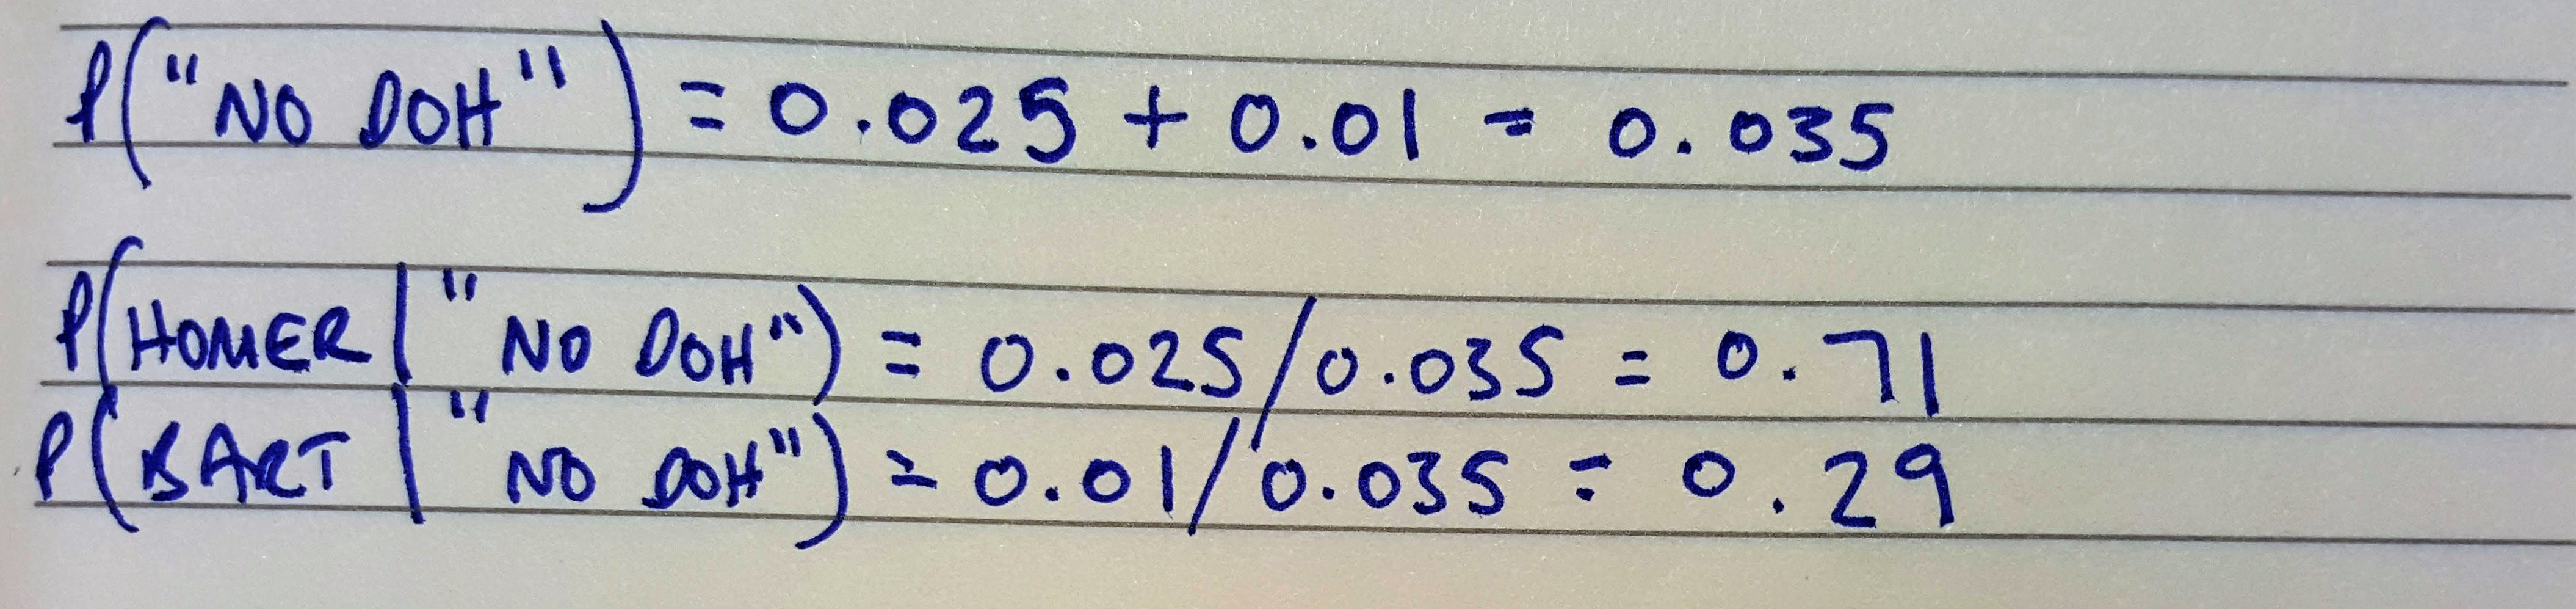 P("NO DOH") = 0.025 + 0.01 = 0.035
P(HOMER | "NO DOH") = 0.025/0.035 = 0.71
P(BART | "NO DOH") = 0.01/0.035 = 0.29